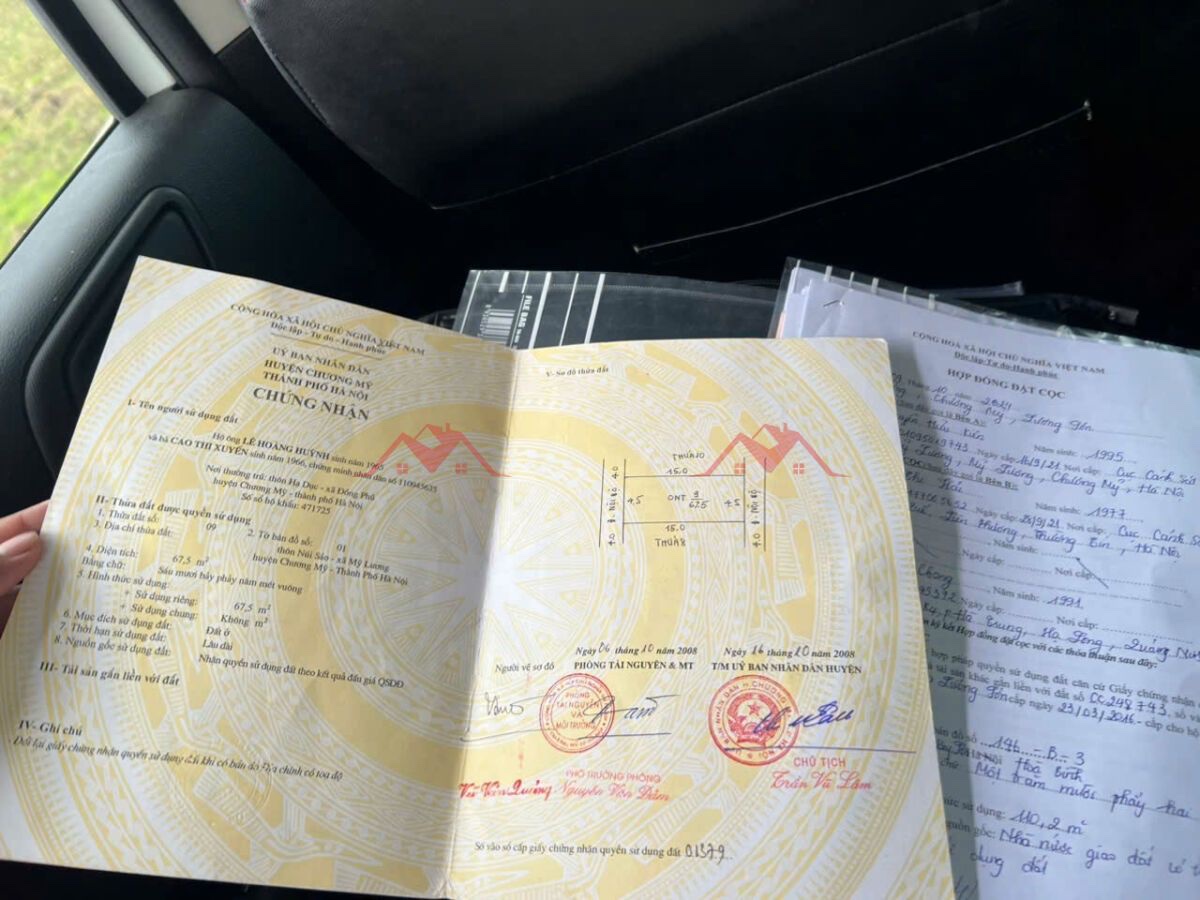 CỘNG HÒA XÃ HỘI CHỦ NGHĨA VIỆT NAM
Độc lập - Tự do - Hạnh phúc
UỶ BAN NHÂN DÂN
HUYỆN CHƯƠNG MỸ
THÀNH PHỐ HÀ NỘI
CHỨNG NHẬN
I- Tên người sử dụng đất
Hộ ông LÊ HOÀNG HUỲNH sinh năm 1965
và bà CAO THỊ XUYẾN sinh năm 1966, chứng minh nhân dân số 110945635
Nơi thường trú: thôn Hạ Dục - xã Đồng Phú
huyện Chương Mỹ - thành phố Hà Nội
Số sổ hộ khẩu: 471725
II- Thửa đất được quyền sử dụng
1. Thửa đất số: 09 2. Tờ bản đồ số: 01
3. Địa chỉ thửa đất: thôn Núi Sáo - xã Mỹ Lương
huyện Chương Mỹ - Thành Phố Hà Nội
4. Diện tích: 67,5 m²
Bằng chữ: Sáu mươi bảy phảy năm mét vuông
5. Hình thức sử dụng:
+ Sử dụng riêng: 67,5 m²
+ Sử dụng chung: Không m²
6. Mục đích sử dụng đất: Đất ở
7. Thời hạn sử dụng đất: Lâu dài
8. Nguồn gốc sử dụng đất: Nhận quyền sử dụng đất theo kết quả đấu giá QSDĐ
III- Tài sản gắn liền với đất
IV- Ghi chú
- Đổi lại giấy chứng nhận quyền sử dụng đất khi có bản đồ Địa chính có toạ độ
V- Sơ đồ thửa đất
THỬA 10
15.0
4.0 Đ. NỘI BỘ 4.0
4.5 ONT 9 67.5 4.5
4.0 Đ. NỘI BỘ
15.0
THỬA 8
Ngày 06 tháng 10 năm 2008
Người vẽ sơ đồ PHÒNG TÀI NGUYÊN & MT
Ngày 16 tháng 10 năm 2008
T/M UỶ BAN NHÂN DÂN HUYỆN
PHÒNG
TÀI NGUYÊN
VÀ
MÔI TRƯỜNG
PHÓ TRƯỞNG PHÒNG
Vũ Văn Quảng Nguyễn Văn Đảm
CHỦ TỊCH
Trần Vũ Lâm
Số vào sổ cấp giấy chứng nhận quyền sử dụng đất 01379
FILE BAG
CỘNG HOÀ XÃ HỘI CHỦ NGHĨA VIỆT NAM
Độc lập-Tự do-Hạnh phúc
HỢP ĐỒNG ĐẶT CỌC
tháng 10 năm 2024
Chương Mỹ, Lương Sơn
Bên A
Năm sinh: 1995
Ngày cấp Nơi cấp: Cục Cảnh Sát
Lương, Mỹ Lương, Chương Mỹ, Hà Nội
Bên B
Năm sinh: 1977
Ngày cấp: Nơi cấp: Cục Cảnh Sát
Thường Tín, Hà Nội
Năm sinh:
Ngày cấp: Nơi cấp
Năm sinh: 1991
Ngày cấp: Nơi cấp:
Hà Trung, Hạ Long, Quảng Ninh
ký kết Hợp đồng đặt cọc với các thỏa thuận sau đây:
hợp pháp quyền sử dụng đất căn cứ Giấy chứng nhận
tài sản khác gắn liền với đất số CC 248743, số
Lương Sơn cấp ngày 23/03/2016 - cấp cho hộ
đồ số 14b - B - 3
Hoà Bình
Một trăm mười phẩy hai
sử dụng: 110,2 m²
nguồn gốc: Nhà nước giao đất có
dụng đất